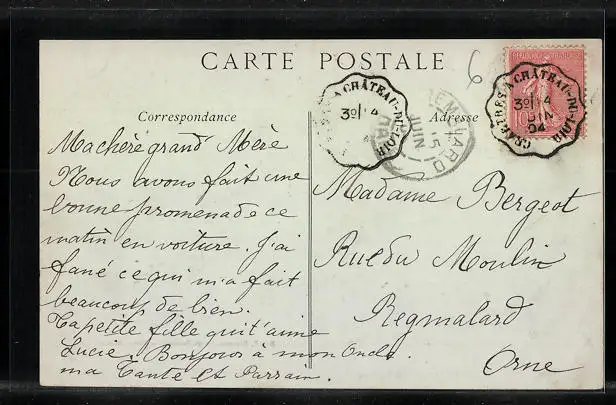 CARTE POSTALE
6
Correspondance
Adresse
CHARTRES A CHÂTEAU-DU-LOIR
3º/ 4
JUIN
04
CHÂTEAU-DU-LOIR
3º/ 4
REMALARD
15
JUIN
Ma chère grand Mère
Nous avons fait une
bonne promenade ce
matin en voiture. J'ai
fané ce qui m'a fait
beaucoup de bien.
Ta petite fille qui t'aime
Lucie. Bonjour à mon Oncle
ma Tante et Parrain.
Madame Bergeot
Rue du Moulin
Regmalard
Orne